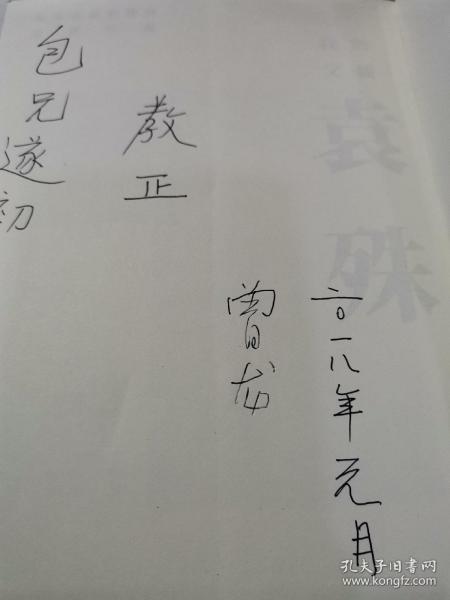 包兄遂初
教正
曾龙
二〇一八年元月
孔夫子旧书网
www.kongfz.com